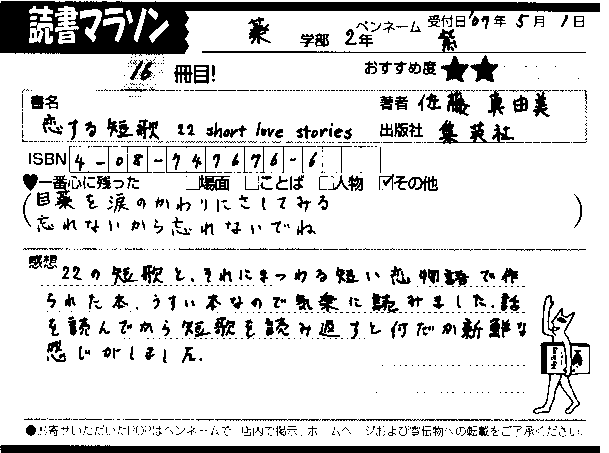 読書マラソン
薬 学部 2年 ペンネーム 紫 受付日'07年 5月 1日
16 冊目! おすすめ度 ★★
書名 著者 佐藤 真由美
恋する短歌 22 short love stories 出版社 集英社
ISBN 4-08-747676-6
♥一番心に残った □場面 □ことば □人物 ☑その他
(目薬を涙のかわりにさしてみる
忘れないから忘れないでね)
感想
22の短歌と、それにまつわる短い恋物語で作
られた本。うすい本なので気楽に読みました。話
を読んでから短歌を読み返すと何だか新鮮な
感じがしました。
●お寄せいただいたPOPはペンネームで、店内で掲示、ホームページおよび宣伝物への転載をご了承ください。